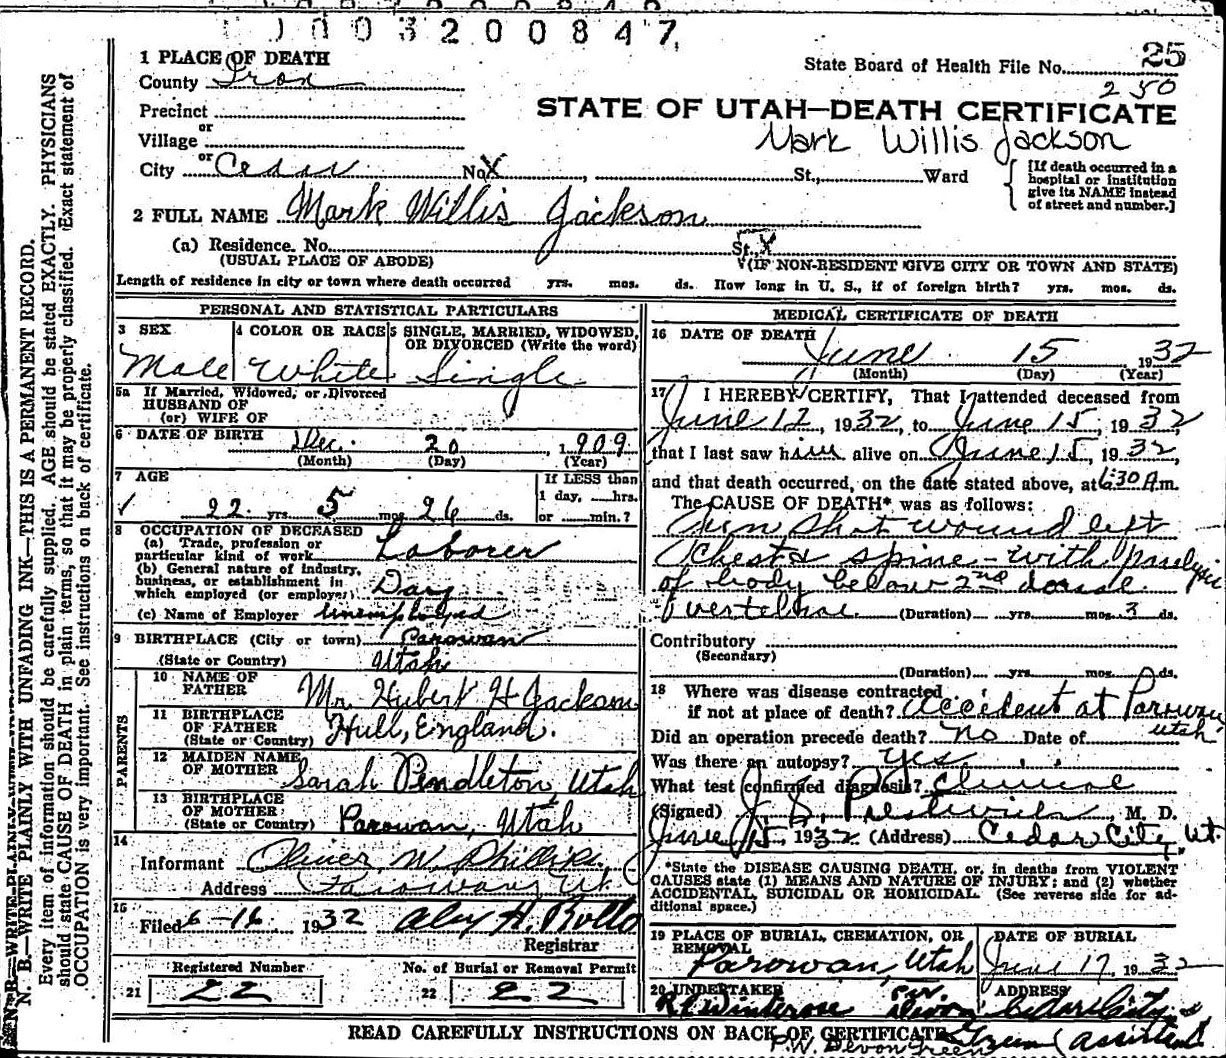 1003200847
25
1 PLACE OF DEATH
State Board of Health File No. 250
County Iron
STATE OF UTAH—DEATH CERTIFICATE
Precinct
Mark Willis Jackson
or
Village
or
City Cedar No. X St., Ward
[If death occurred in a hospital or institution give its NAME instead of street and number.]
2 FULL NAME Mark Willis Jackson
(a) Residence. No. St., X
(USUAL PLACE OF ABODE) (IF NON-RESIDENT GIVE CITY OR TOWN AND STATE)
Length of residence in city or town where death occurred yrs. mos. ds. How long in U. S., if of foreign birth? yrs. mos. ds.
PERSONAL AND STATISTICAL PARTICULARS
3 SEX
Male
4 COLOR OR RACE
White
5 SINGLE, MARRIED, WIDOWED, OR DIVORCED (Write the word)
Single
5a If Married, Widowed, or Divorced
HUSBAND OF
(or) WIFE OF
6 DATE OF BIRTH Dec. 20 1909
(Month) (Day) (Year)
7 AGE
22 yrs. 5 mos. 26 ds.
If LESS than
1 day, hrs.
or min.?
8 OCCUPATION OF DECEASED
(a) Trade, profession or
particular kind of work Laborer
(b) General nature of industry,
business, or establishment in
which employed (or employer) Day
(c) Name of Employer Unemployed
9 BIRTHPLACE (City or town) Parowan
(State or Country) Utah
PARENTS
10 NAME OF FATHER Mr. Hubert H Jackson
11 BIRTHPLACE OF FATHER (State or Country) Hull, England.
12 MAIDEN NAME OF MOTHER Sarah Pendleton, Utah
13 BIRTHPLACE OF MOTHER (State or Country) Parowan, Utah
14
Informant Oliver W. Phillips
Address Parowan, Ut
15
Filed 6-16 1932 Alex H. Rollo
Registrar
Registered Number
21 22
No. of Burial or Removal Permit
22 22
MEDICAL CERTIFICATE OF DEATH
16 DATE OF DEATH
June 15 1932
(Month) (Day) (Year)
17 I HEREBY CERTIFY, That I attended deceased from
June 12, 1932, to June 15, 1932,
that I last saw him alive on June 15, 1932,
and that death occurred, on the date stated above, at 6:30 A.m.
The CAUSE OF DEATH* was as follows:
Gun shot wound left
chest & spine - with paralysis
of body below 2nd dorsal
vertebrae. (Duration) yrs. mos. 3 ds.
Contributory
(Secondary)
(Duration) yrs. mos. ds.
18 Where was disease contracted
if not at place of death? Accident at Parowan
Utah
Did an operation precede death? No Date of
Was there an autopsy? Yes
What test confirmed diagnosis? Clinical
(Signed) J. S. Prestwich, M. D.
June 15 1932 (Address) Cedar City, Ut.
*State the DISEASE CAUSING DEATH, or, in deaths from VIOLENT
CAUSES state (1) MEANS AND NATURE OF INJURY; and (2) whether
ACCIDENTAL, SUICIDAL OR HOMICIDAL. (See reverse side for ad-
ditional space.)
19 PLACE OF BURIAL, CREMATION, OR REMOVAL
Parowan, Utah
DATE OF BURIAL
June 17, 1932
20 UNDERTAKER
ADDRESS
R L Winterose per Devon Cedar City
Green (assistant)
READ CAREFULLY INSTRUCTIONS ON BACK OF CERTIFICATE
P.W. Devon Green
N. B.—WRITE PLAINLY WITH UNFADING INK—THIS IS A PERMANENT RECORD.
Every item of information should be carefully supplied. AGE should be stated EXACTLY. PHYSICIANS
should state CAUSE OF DEATH in plain terms, so that it may be properly classified. Exact statement of
OCCUPATION is very important. See instructions on back of certificate.